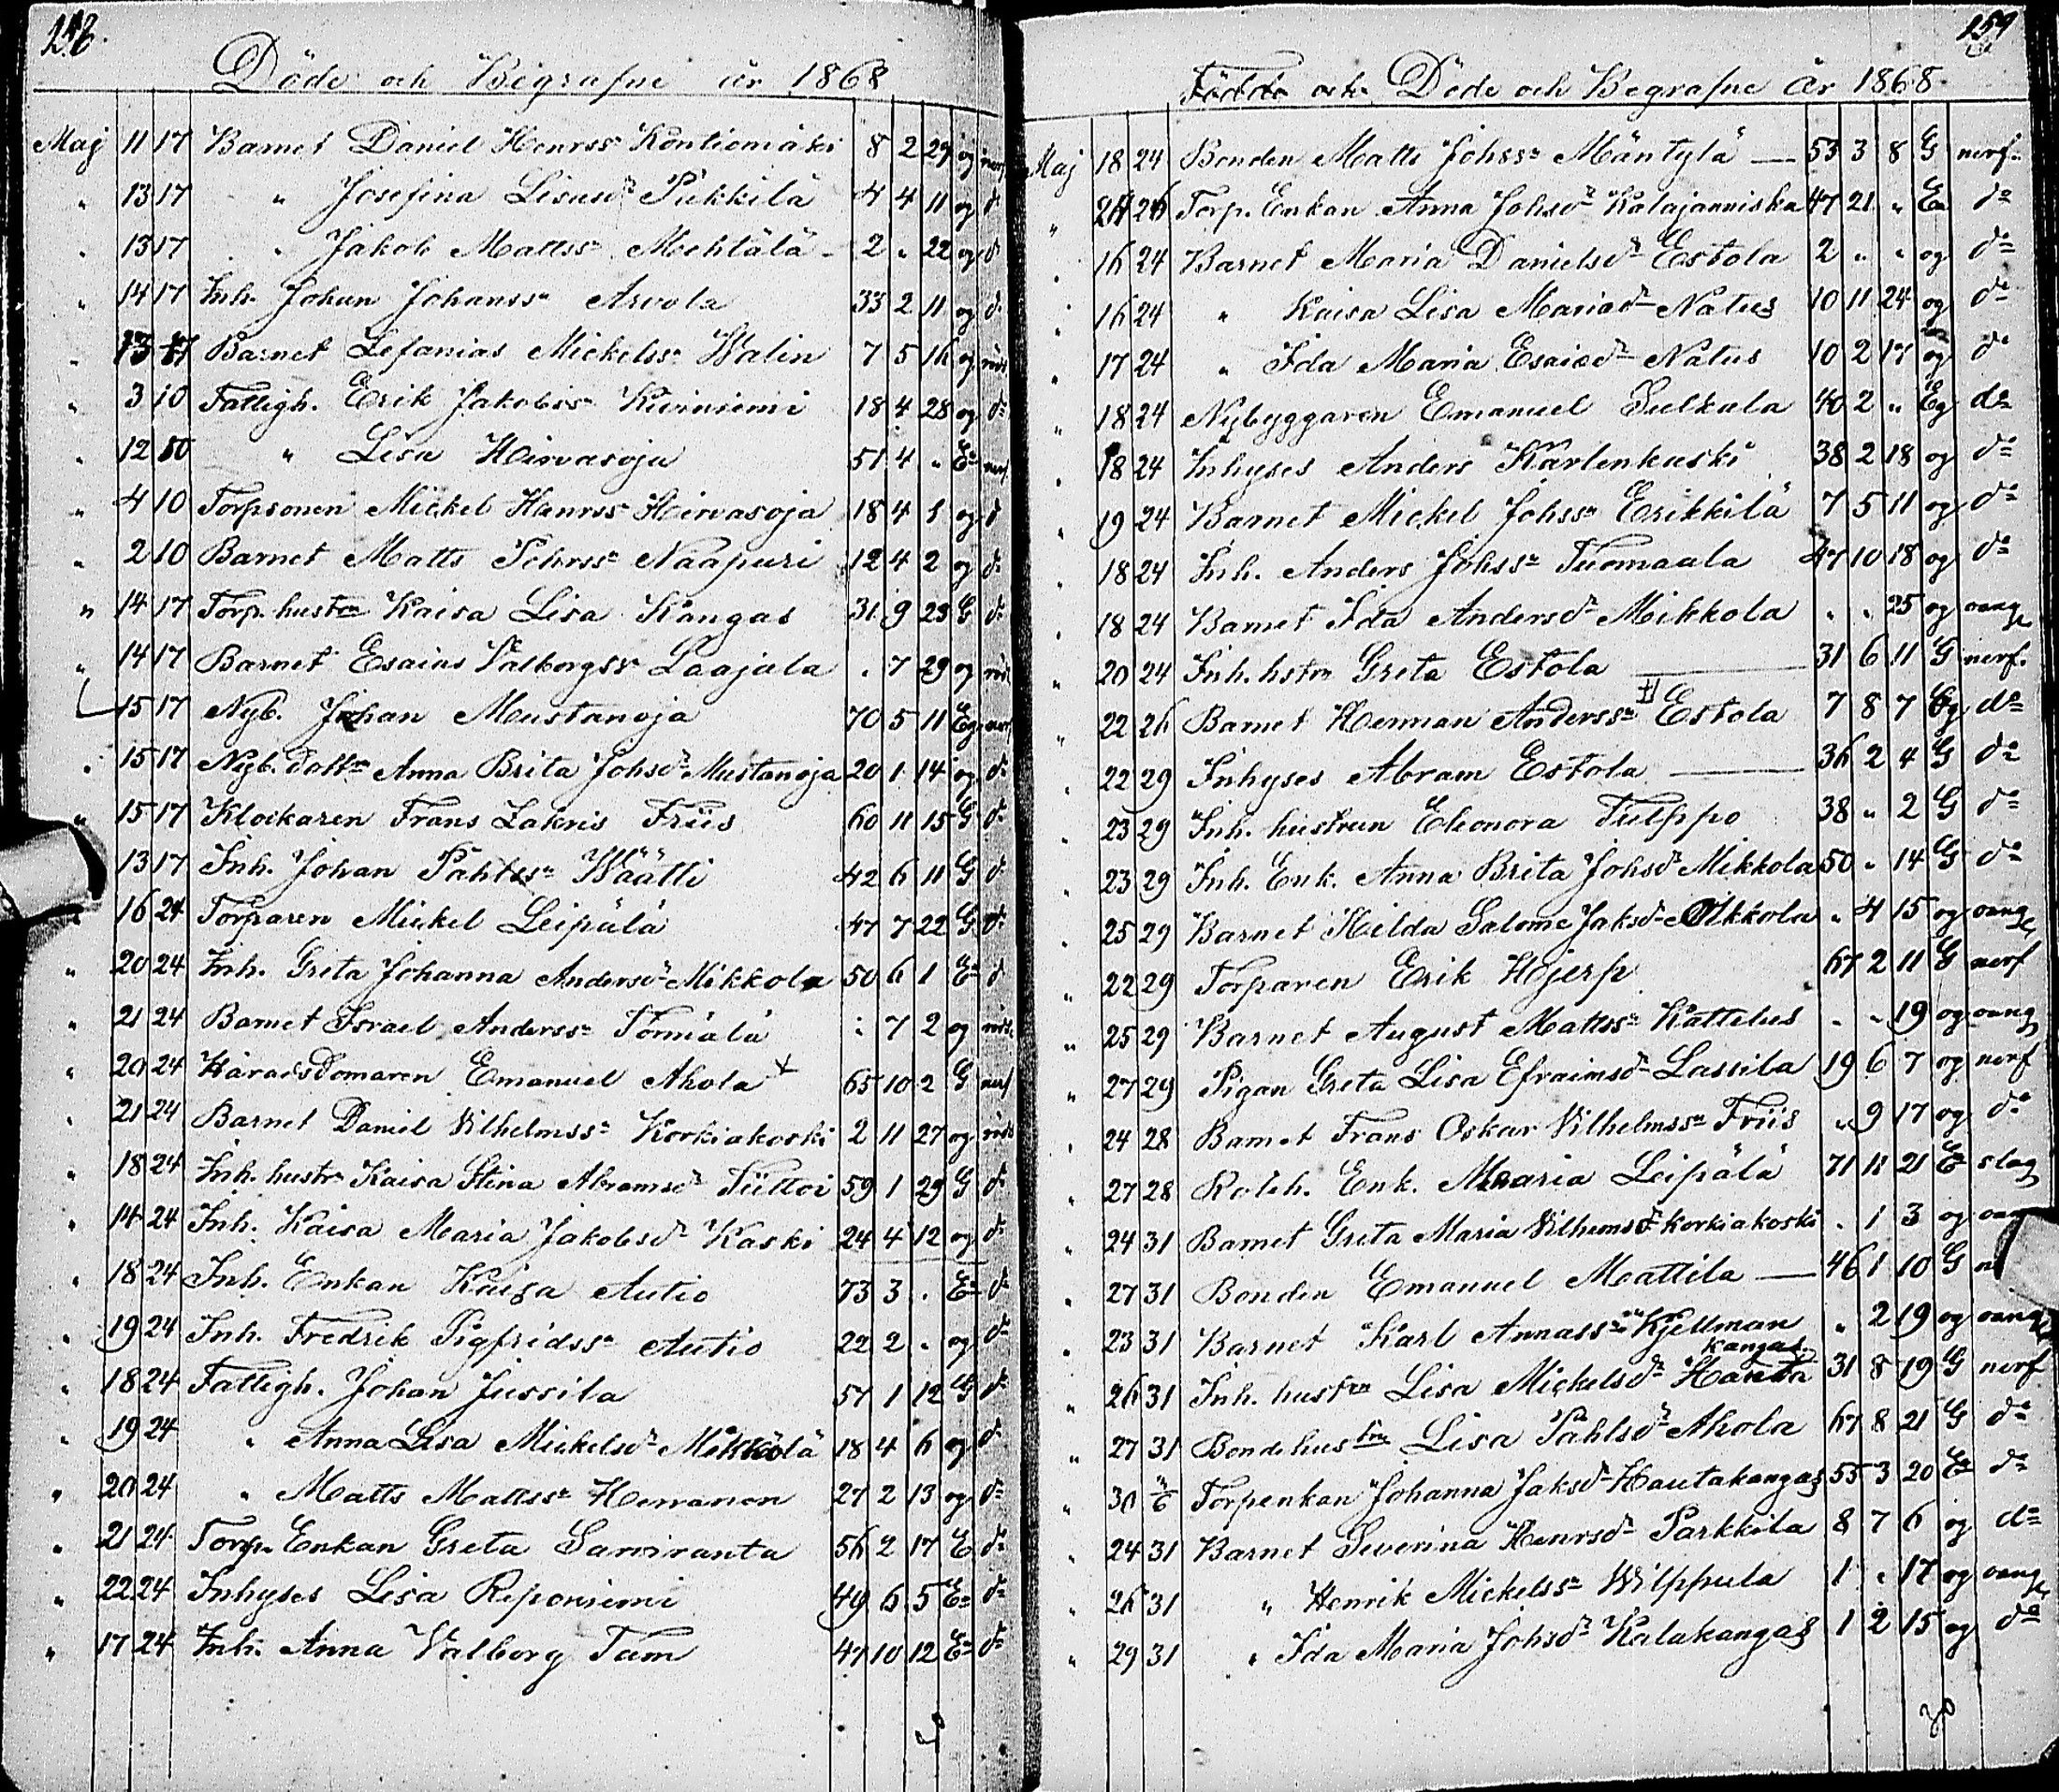 158.
Döde och Begrafne år 1868
Maj 11 17 Barnet Daniel Henrss Kontiomäki 8 2 29 og nerf
" 13 17 " Josefina Lisasd Pukkilä 4 4 11 og d:o
" 13 17 " Jakob Mattss Mehtälä - 2 " 22 og d:o
" 14 17 Inh. Johan Johanss Arvola 33 2 11 og d:o
" 13 17 Barnet Zefanias Mickelss Walin 7 5 16 og röds
" 3 10 Fattigh. Erik Jakobss Kiviniemi 18 4 28 og d:o
" 12 " Lisa Hirvasoja 51 4 " E nerf
" 4 10 Torpsonen Mickel Hanrss Hirvasoja 18 4 1 og d
" 2 10 Barnet Matts Pehrss Naapuri 12 4 2 og d:o
" 14 17 Torp. hustrn Kaisa Lisa Kangas 31 9 23 G d:o
" 14 17 Barnet Esaias Valborgss Laajala . 7 29 og röds
15 17 Nyb. Johan Mustanoja 70 5 11 Eg nerf
" 15 17 Nyb. dottn Anna Brita Johsd Mustanoja 20 1 14 og d:o
" 15 17 Klockaren Frans Zakris Friis 60 11 15 G d:o
13 17 Inh. Johan Pahlss Wäätti 42 6 11 G d:o
" 16 24 Torparen Mickel Leipälä 47 7 22 G d:o
" 20 24 Inh. Greta Johanna Andersd Mikkola 50 6 1 E d
" 21 24 Barnet Israel Anderss Törmälä : 7 2 og röds
" 20 24 HäradsDomaren Emanuel Ahola + 65 10 2 G nerf
" 21 24 Barnet Daniel Vilhelmss Korkiakoski 2 11 27 og röds
" 18 24 Inh. hustr Kaisa Stina Abramsd Tiittoi 59 1 29 G d:o
" 14 24 Inh. Kaisa Maria Jakobsd Kaski 24 4 12 og d:o
" 18 24 Inh. Enkan Kaisa Autio 73 3 . E d:o
" 19 24 Inh. Fredrik Sigfridss Autio 22 2 . og d:o
" 18 24 Fattigh. Johan Jussila 57 1 12 G d:o
" 19 24 " Anna Lisa Mickelsd 18 4 6 og d:o
" 20 24 " Matts Mattss 27 2 13 og d:o
" 21 24 Torp. Enkan Greta Saviranta 56 2 17 E d:o
" 22 24 Inhyses Lisa Reponiemi 49 6 5 E d:o
" 17 24 Inh. Anna Valborg Tam 47 10 12 E d:o
159
Födde och Döde och Begrafne år 1868.
Maj 18 24 Bonden Matts Johss Mäntylä — 53 3 8 G nerf.
" 24 26 Torp. Enkan Anna Johsd Kalajanniska 47 21 " En d:o
" 16 24 Barnet Maria Danielsd Estola 2 " " og d:o
" 16 24 " Kaisa Lisa Mariasd Natus 10 11 24 og d:o
" 17 24 " Ida Maria Esaiasd Natus 10 2 17 og d:o
" 18 24 Nybyggaren Emanuel Sulkala 40 2 " Eg d:o
" 18 24 Inhyses Anders Karlenkaski 38 2 18 og d:o
" 19 24 Barnet Mickel Johss Erikkilä 7 5 11 og d:o
" 18 24 Inh. Anders Johss Tuomaala 47 10 18 og d:o
" 18 24 Barnet Ida Andersd Mikkola " " 25 og oang
" 20 24 Inh. hstrn Greta Estola — 31 6 11 G nerf.
" 22 26 Barnet Herman Anderss Estola 7 8 7 Eg d:o
" 22 29 Inhyses Abram Estola — 36 2 4 G d:o
" 23 29 Inh. hustrun Eleonora Tulppo 38 " 2 G d:o
" 23 29 Inh. Enk. Anna Brita Johsd Mikkola 50 " 14 G d:o
" 25 29 Barnet Hilda Salome Jaksd Olkkola " 4 15 og oang
" 22 29 Torparen Erik Hjerp 67 2 11 G nerf
" 25 29 Barnet August Mattss Kattelus " " 19 og oang
" 27 29 Pigan Greta Lisa Efraimsd Lassila 19 6 7 og nerf
" 24 28 Barnet Frans Oskar Vilhelmss Friis " 9 17 og d:o
" 27 28 Roteh. Enk. Maria Leipälä 71 11 21 E slag
" 24 31 Barnet Greta Maria Vilhemsd Korkiakoski . 1 3 og oan
" 27 31 Bonden Emanuel Mattila — 46 1 10 G n
" 23 31 Barnet Karl Annass Kjellman " 2 19 og oang
kangas
" 26 31 Inh. hustrn Lisa Mickelsd Hauta 31 8 19 G nerf
" 27 31 Bondehustru Lisa Pahlsd Ahola 67 8 21 G d:o
" 30 Torpenkan Johanna Jaksd Hautakangas 55 3 20 E d:o
" 24 31 Barnet Severina Henrsd Parkkila 8 7 6 og d:o
" 26 31 " Henrik Mickelss Wilppula 1 " 17 og oang
" 29 31 " Ida Maria Johsd Kalakangas 1 2 15 og d:o